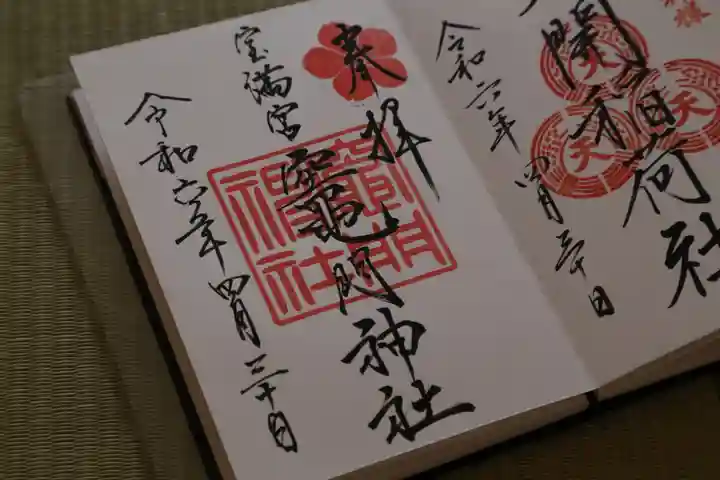 開稲荷社
令和六年
四月三十日
奉拝
宝満宮
竈門神社
竈門
神社
令和六年四月三十日
天
天
天